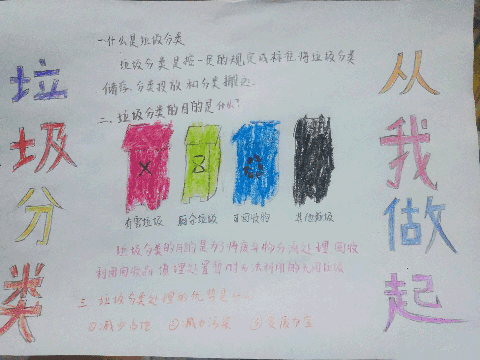 垃圾分类
从我做起
一.什么是垃圾分类
垃圾分类是按一定的规定或标准将垃圾分类
储存、分类投放和分类搬运
二.垃圾分类的目的是什么?
有害垃圾 厨余垃圾 可回收物 其他垃圾
垃圾分类的目的是为了将废弃物分流处理
利用回收 填埋处置暂时无法利用的无用垃圾
三.垃圾分类处理的优点是什么
①减少占地 ②减少污染 ③变废为宝